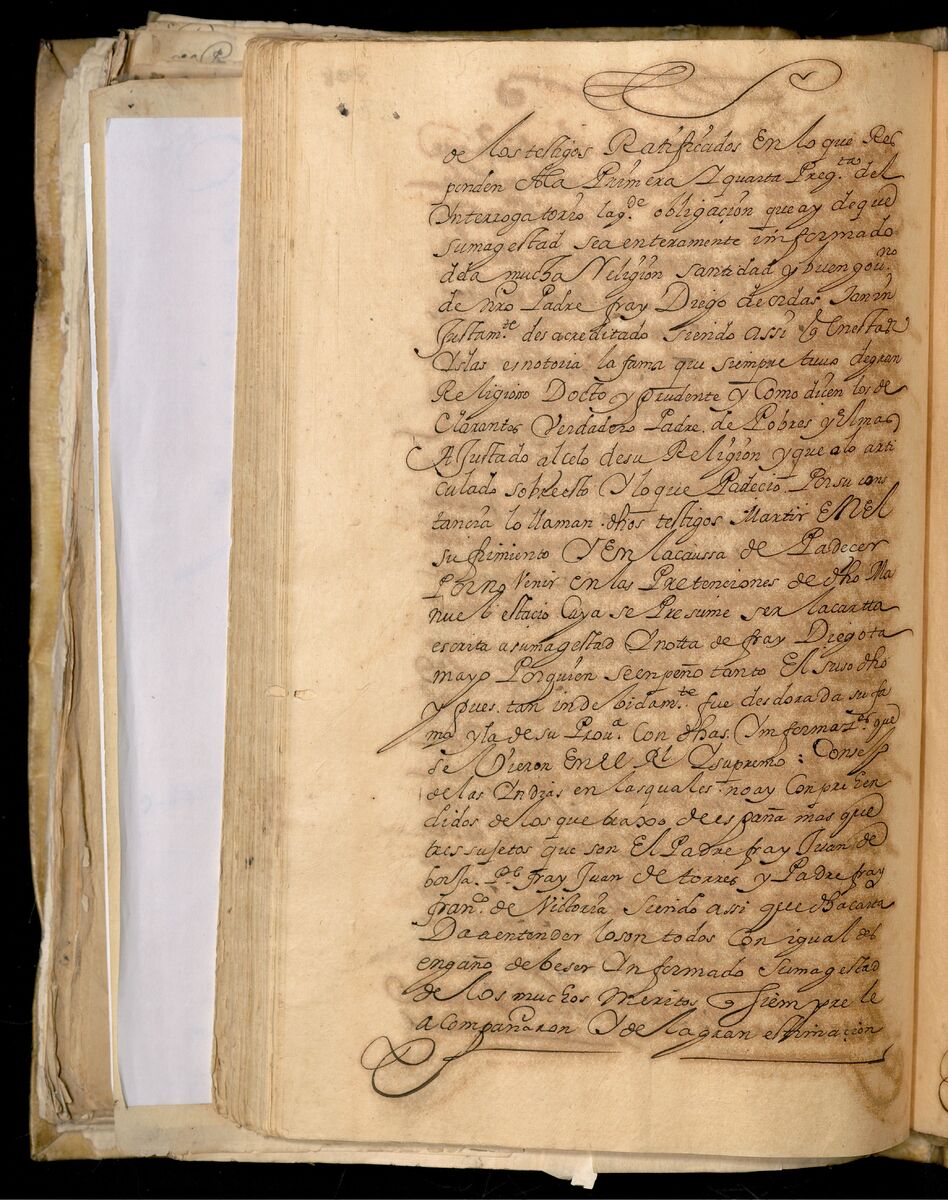 de los testigos Ratificados En lo que Res
ponden A la Primera Y quarta Preg.ta del
Interrogatorio la g.de obligacion que ay de que
su magestad sea enteramente informado
de la mucha Religion santidad y buen gou.no
de nro Padre fray Diego de ordas tan in
Justam.te desacreditado siendo assi q En estas
Yslas es notoria la fama que siempre tuuo de gran
Religioso Docto y prudente y Como dicen los de
Clarantes Verdadero Padre de Pobres y Almas
Ajustado al celo de su Religion y que a lo arti
culado sobre esto Y lo que Padecio Por su cons
tancia lo llaman dhos testigos Martir EN El
sufrimiento Y En la caussa de Padecer
Por no Venir en las Pretenciones de dho Ma
nuel estacio Cuya se Presume ser la cartta
escrita a su magestad Y notta de fray Diego ta
mayo Por quien se enpeño tanto El suso dho
y pues tan indebidam.te fue desdorada su fa
ma y la de su Prou.a Con dhas Ynformaz.es que
se Vieron En El Rl Y supremo Consejo
de las Indias en las quales no ay Conprehen
didos de los que traxo de españa mas que
tres sujetos que son El Padre fray Juan de
borja P.e fray Juan de torres y Padre fray
fran.co de Victoria siendo assi que dha carta
Da a entender lo son todos Con igual des
engaño debe ser Ynformado Su magestad
de los muchos meritos q siempre le
acompañaron Y de la gran estimacion